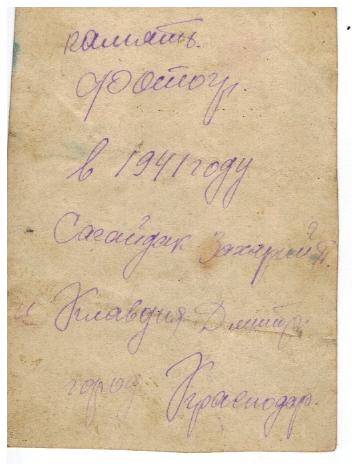 память.
Фотогр.
в 1941 году
Сагайдак Захарий П.
и Клавдия Дмитр.
город Краснодар.